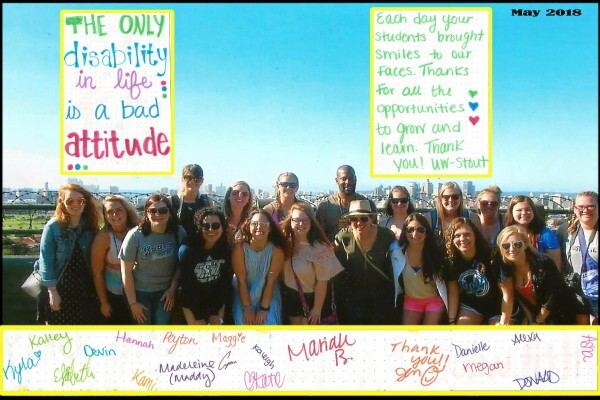 THE ONLY
disability
in life
is a bad
attitude
Each day your
students brought
smiles to our
faces. Thanks
for all the
opportunities
to grow and
learn. Thank
you! UW-Stout
May 2018
Kalley
Hannah
Peyton
Maggie
Mariah
B.
Thank
you!!
Danielle
Alexa
Kyla
Devin
Elizabeth
Kami
Madeleine
(Maddy)
Kaleigh
Megan
DONALD